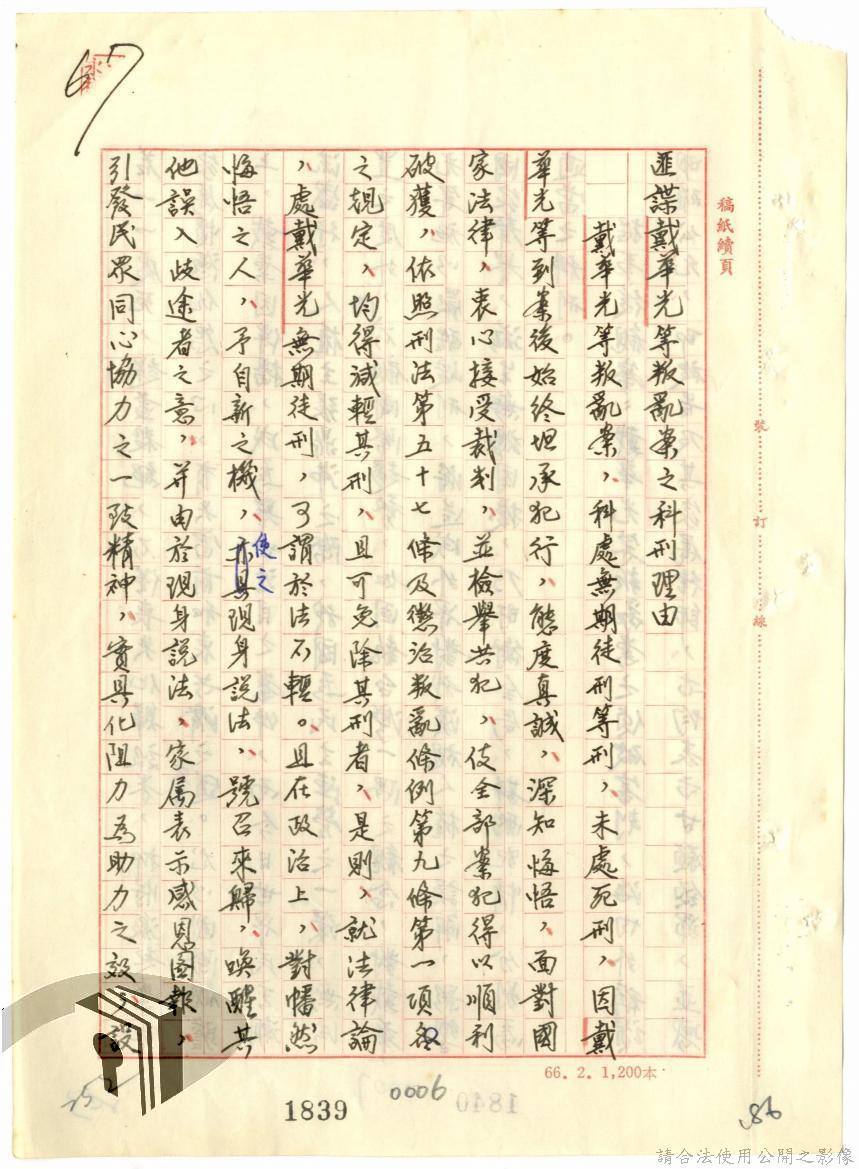 67
稿紙續頁
裝
訂
線
匪諜戴華光等叛亂案之科刑理由
戴華光等叛亂案,科處無期徒刑等刑,未處死刑,因戴
華光等到案後始終坦承犯行,態度真誠,深知悔悟,面對國
家法律,衷心接受裁判,並檢舉共犯,使全部案犯得以順利
破獲,依照刑法第五十七條及懲治叛亂條例第九條第一項各
之規定,均得減輕其刑,且可免除其刑者,是則,就法律論
,處戴華光無期徒刑,可謂於法不輕。且在政治上,對幡然
悔悟之人,予自新之機,使之現身說法,號召來歸,喚醒其
他誤入歧途者之意,并由於現身說法,家屬表示感恩圖報,
引發民眾同心協力之一致精神,實具化阻力為助力之效,設
66. 2. 1,200本
0006
1839
252
請合法使用公開之影像